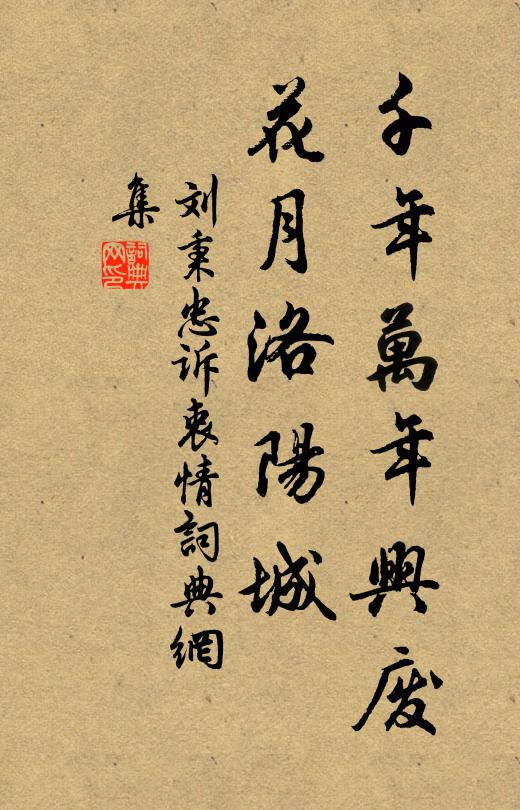 千年萬年興废
花月洛陽城
刘秉忠訴衷情詞典網
集
詞典
网印